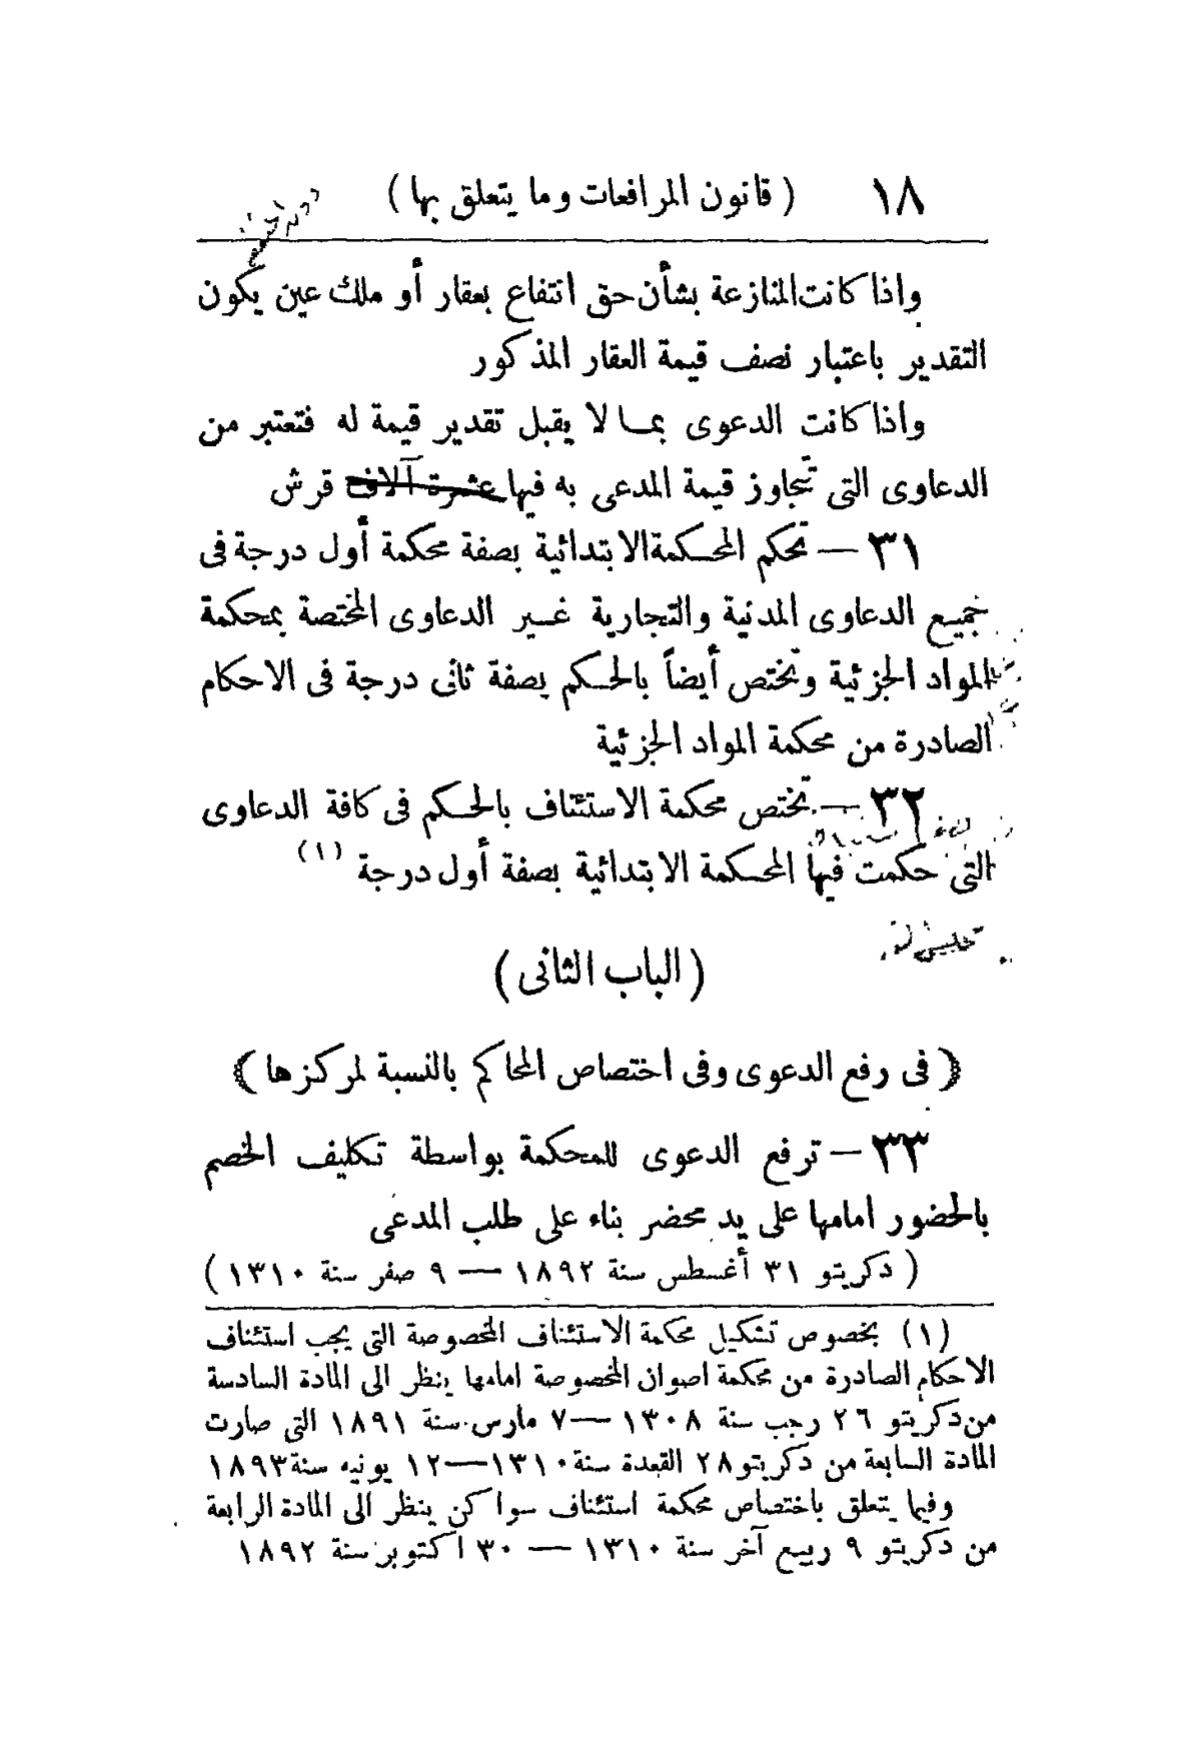 ١٨ ( قانون المرافعات وما يتعلق بها )
واذا كانت المنازعة بشأن حق انتفاع بعقار أو ملك عين يكون
التقدير باعتبار نصف قيمة العقار المذكور
واذا كانت الدعوى بما لا يقبل تقدير قيمة له فتعتبر من
الدعاوى التى تتجاوز قيمة المدعى به فيها عشرة آلاف قرش
٣١ — تحكم المحكمة الابتدائية بصفة محكمة أول درجة فى
جميع الدعاوى المدنية والتجارية غير الدعاوى المختصة بمحكمة
المواد الجزئية وتختص أيضاً بالحكم بصفة ثانى درجة فى الاحكام
الصادرة من محكمة المواد الجزئية
٣٢ — تختص محكمة الاستئناف بالحكم فى كافة الدعاوى
التى حكمت فيها المحكمة الابتدائية بصفة أول درجة (١)
( الباب الثانى )
( فى رفع الدعوى وفى اختصاص المحاكم بالنسبة لمركزها )
٣٣ — ترفع الدعوى للمحكمة بواسطة تكليف الخصم
بالحضور امامها على يد محضر بناء على طلب المدعى
( دكريتو ٣١ أغسطس سنة ١٨٩٢ — ٩ صفر سنة ١٣١٠ )
(١) بخصوص تشكيل محكمة الاستئناف المخصوصة التى يجب استئناف
الاحكام الصادرة من محكمة اصوان المخصوصة امامها ينظر الى المادة السادسة
من دكريتو ٢٦ رجب سنة ١٣٠٨ — ٧ مارس سنة ١٨٩١ التى صارت
المادة السابعة من دكريتو ٢٨ القعدة سنة ١٣١٠ — ١٢ يونيه سنة ١٨٩٣
وفيما يتعلق باختصاص محكمة استئناف سواكن ينظر الى المادة الرابعة
من دكريتو ٩ ربيع آخر سنة ١٣١٠ — ٣٠ اكتوبر سنة ١٨٩٢